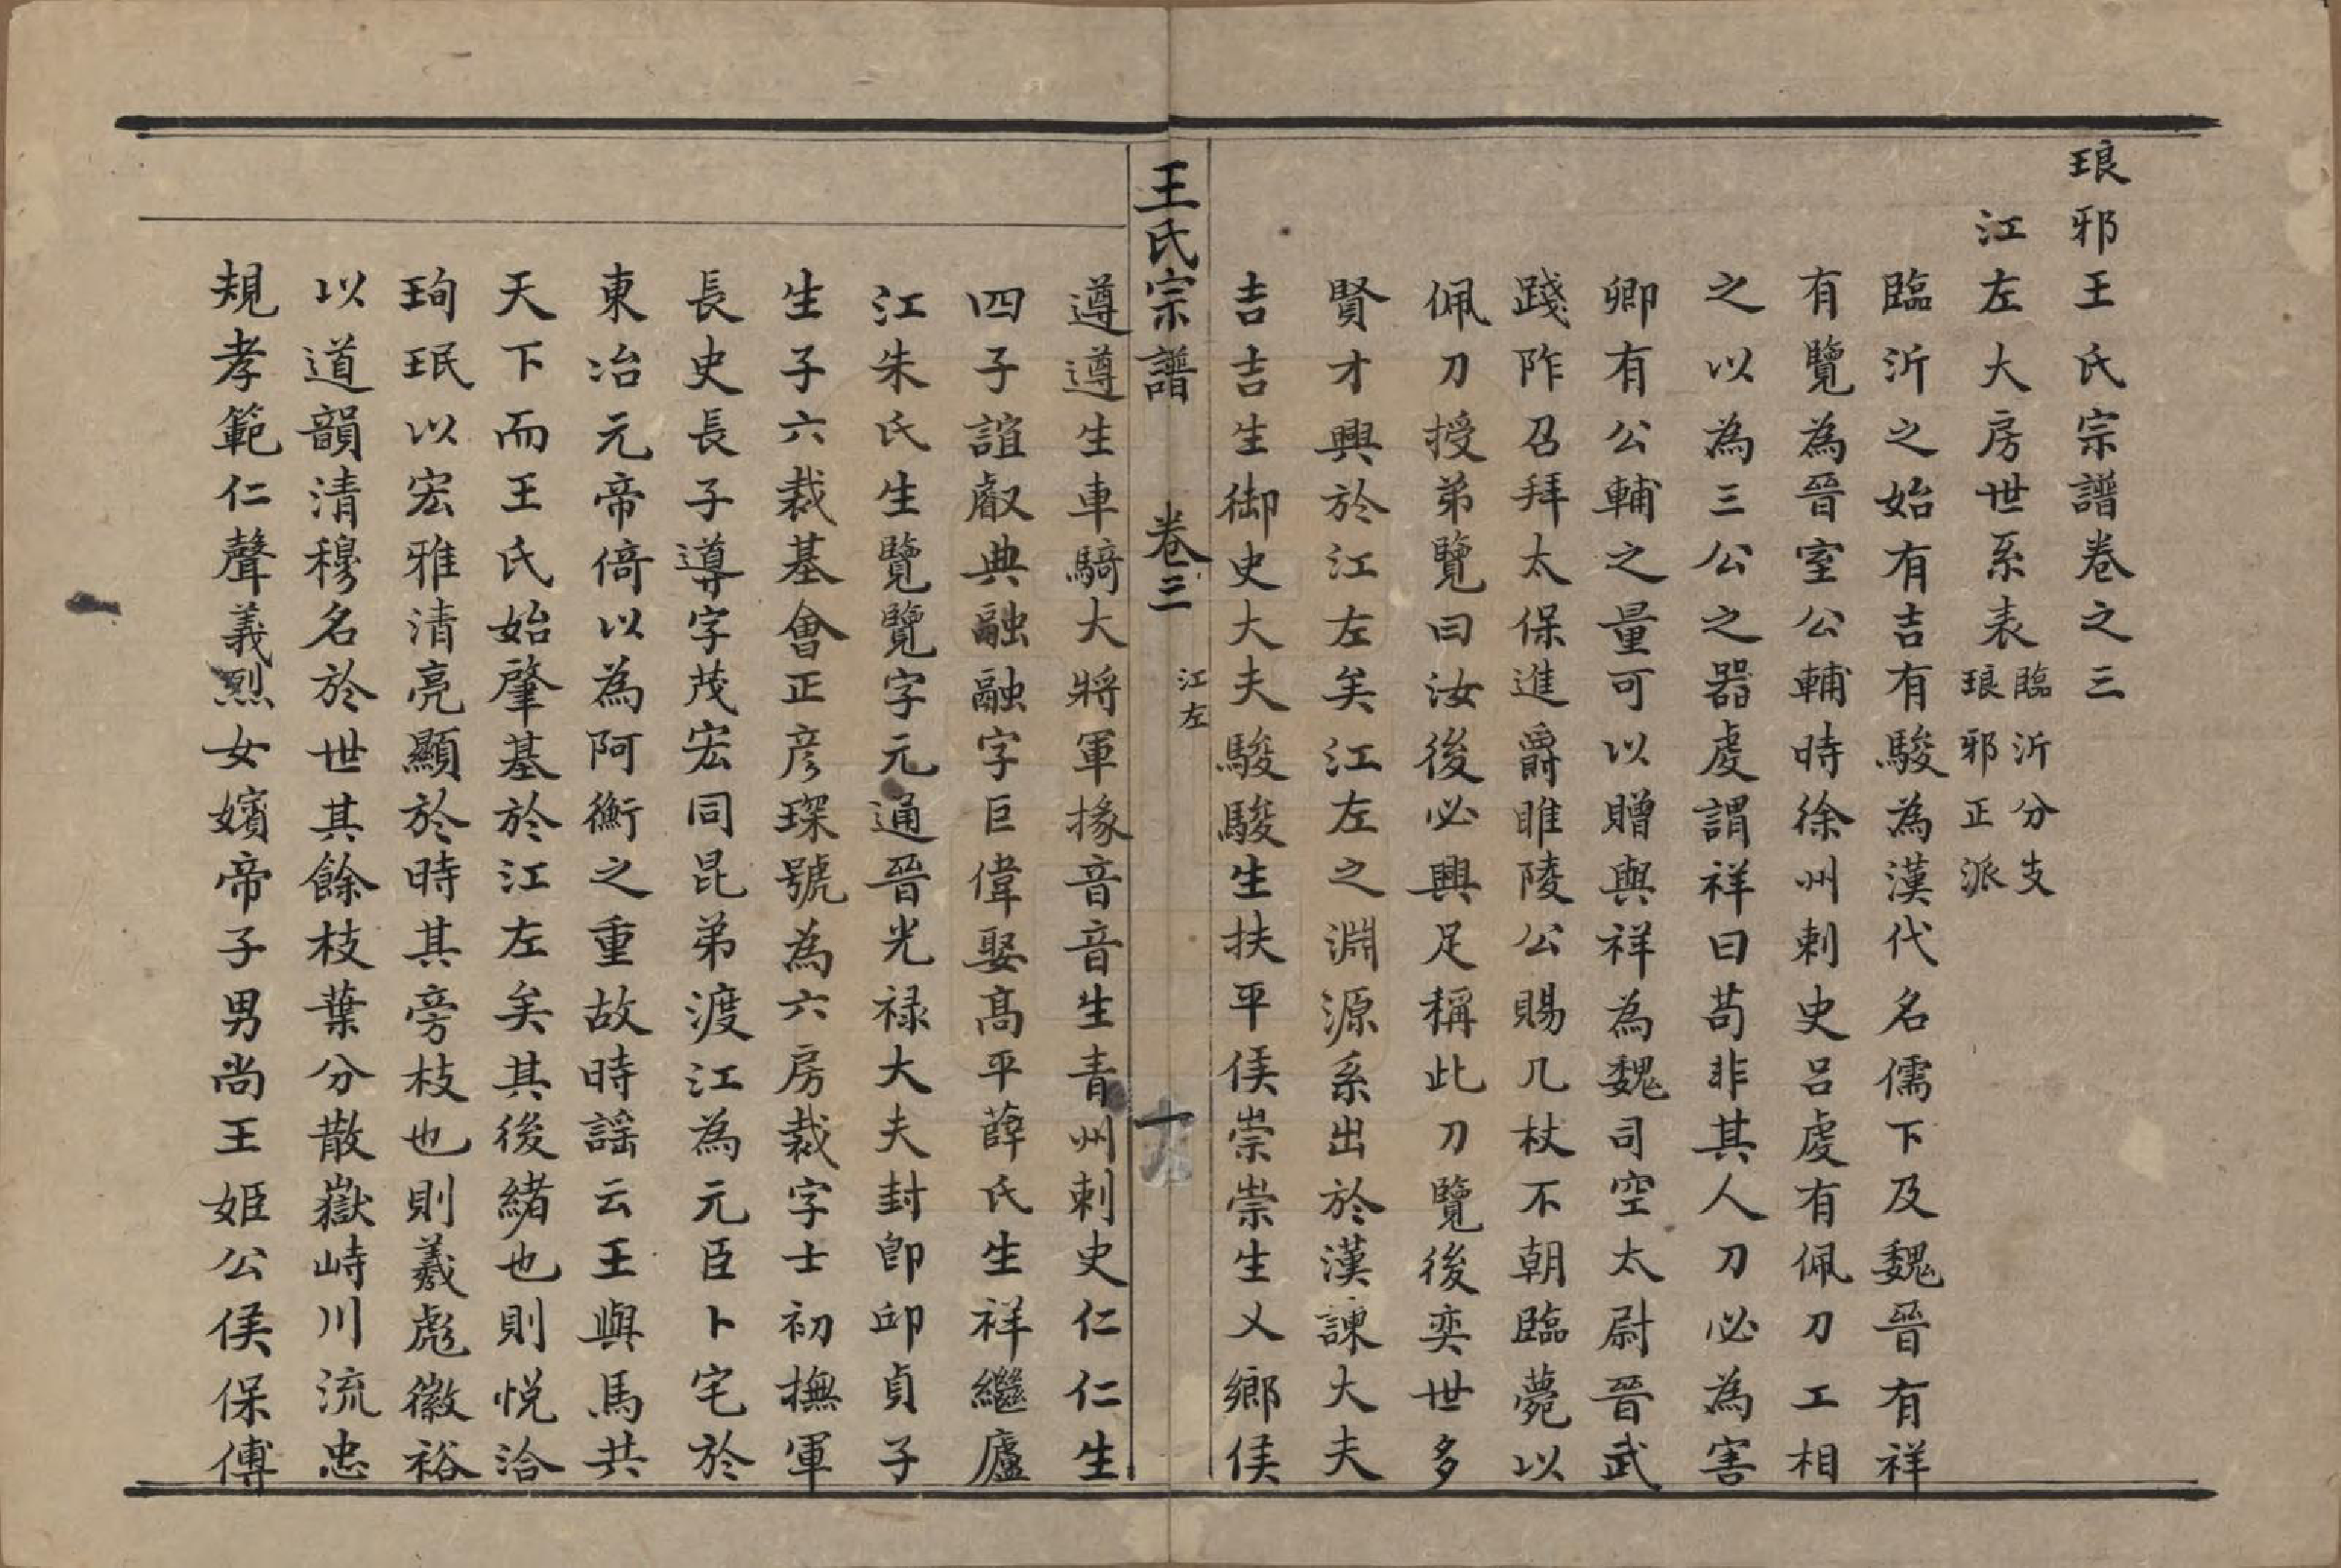 琅邪王氏宗譜卷之三
江左大房世系表
臨沂分支
琅邪正派
臨沂之始有吉有駿為漢代名儒下及魏晉有祥
有覽為晉室公輔時徐州刺史呂虔有佩刀工相
之以為三公之器虔謂祥曰苟非其人刀必為害
卿有公輔之量可以贈與祥為魏司空太尉晉武
踐阼召拜太保進爵睢陵公賜几杖不朝臨薨以
佩刀授弟覽曰汝後必興足稱此刀覽後奕世多
賢才興於江左矣江左之淵源系出於漢諫大夫
吉吉生御史大夫駿駿生扶平侯崇崇生乂鄉侯
王氏宗譜 卷三 江左 十九
遵遵生車騎大將軍掾音音生青州刺史仁仁生
四子誼叡典融融字巨偉娶高平薛氏生祥繼廬
江朱氏生覽覽字元通晉光祿大夫封即邱貞子
生子六裁基會正彥琛號為六房裁字士初撫軍
長史長子導字茂宏同昆弟渡江為元臣卜宅於
東冶元帝倚以為阿衡之重故時謠云王與馬共
天下而王氏始肇基於江左矣其後緒也則悅洽
珣珉以宏雅清亮顯於時其旁枝也則羲彪徽裕
以道韻清穆名於世其餘枝葉分散嶽峙川流忠
規孝範仁聲義烈女嬪帝子男尚王姬公侯保傅